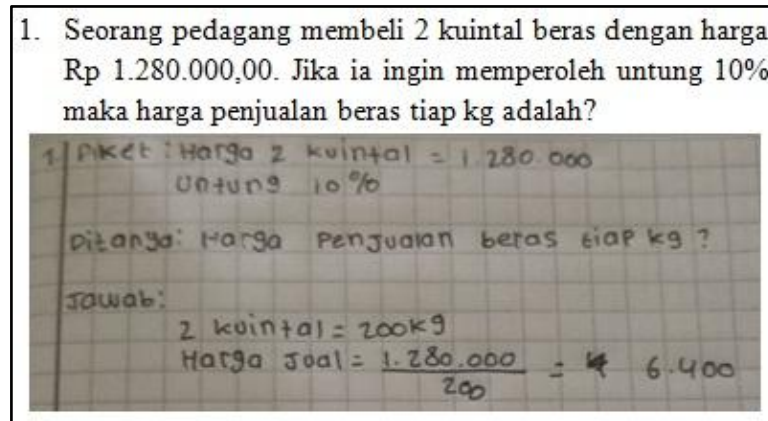 1. Seorang pedagang membeli 2 kuintal beras dengan harga
Rp 1.280.000,00. Jika ia ingin memperoleh untung 10%
maka harga penjualan beras tiap kg adalah?
1 Diket : Harga 2 kuintal = 1.280.000
Untung 10%
Ditanya: Harga Penjualan beras tiap kg ?
Jawab:
2 kuintal = 200kg
Harga Jual = 1.280.000 = 6.400
200